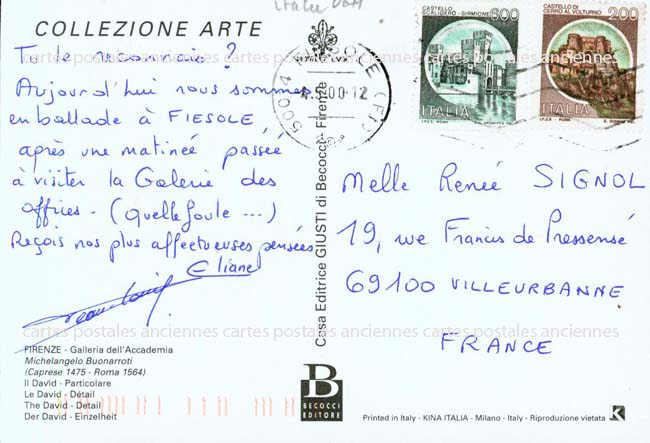 Italie
COLLEZIONE ARTE
Tu le reconnais ?
Aujourd'hui nous sommes
en ballade à FIESOLE,
après une matineé passeé
à visiter la Galerie des
offices - (quelle foule ...)
Reçois nos plus affectueuses pensées
Eliane
cartes postales anciennes cartes postales anciennes cartes postales anciennes
FIRENZE - Galleria dell'Accademia
Michelangelo Buonarroti
(Caprese 1475 - Roma 1564)
Il David - Particolare
Le David - Détail
The David - Detail
Der David - Einzelheit
Casa Editrice GIUSTI di Becocci - Firenze
B
BECOCCI
EDITORE
50014 FIESOLE (FI)
.00-12
CASTELLO
SCALIGERO - SIRMIONE
600
ITALIA
I.P.Z.S. ROMA
CASTELLO DI
CERRO AL VOLTURNO
200
ITALIA
I.P.Z.S. - ROMA
Melle Reneé SIGNOL
19, rue Francis de Pressensé
69100 VILLEURBANNE
FRANCE
Printed in Italy - KINA ITALIA - Milano - Italy - Riproduzione vietata
K